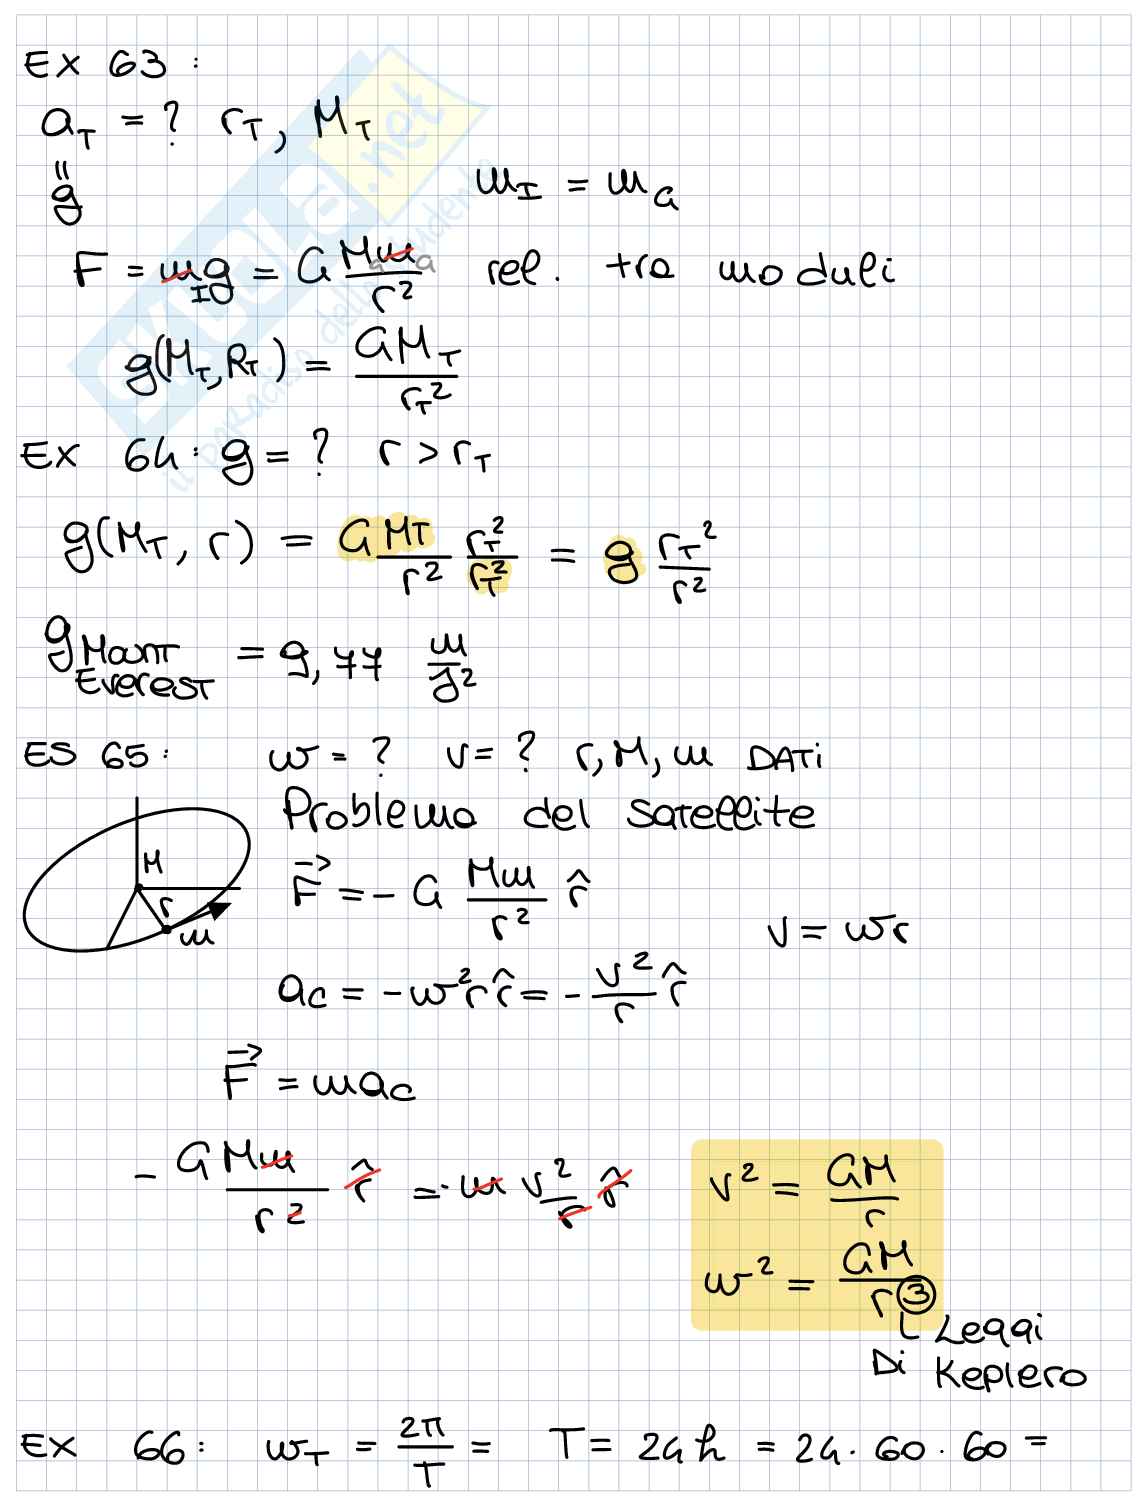 EX 63 :
a_T = ? r_T , M_T
"
g
m_I = m_G
F = m_I g = G Mm_G / r² rel. tra moduli
g(M_T, R_T) = GM_T / r_T²
EX 64 : g = ? r > r_T
g(M_T, r) = GM_T / r² r_T² / r_T² = g r_T² / r²
g Mount Everest = 9,77 m/s²
ES 65 : w = ? v = ? r, M, m DATi
Problema del satellite
M
r
m
F⃗ = - G Mm / r² r̂
v = wr
a_c = - w² r r̂ = - v² / r r̂
F⃗ = ma_c
- GMm / r² r̂ = - m v² / r r̂
v² = GM / r
w² = GM / r³
Leggi
Di Keplero
EX 66 : w_T = 2π / T = T = 24 h = 24 · 60 · 60 =
SKUOLA.net
il paradiso dello studente